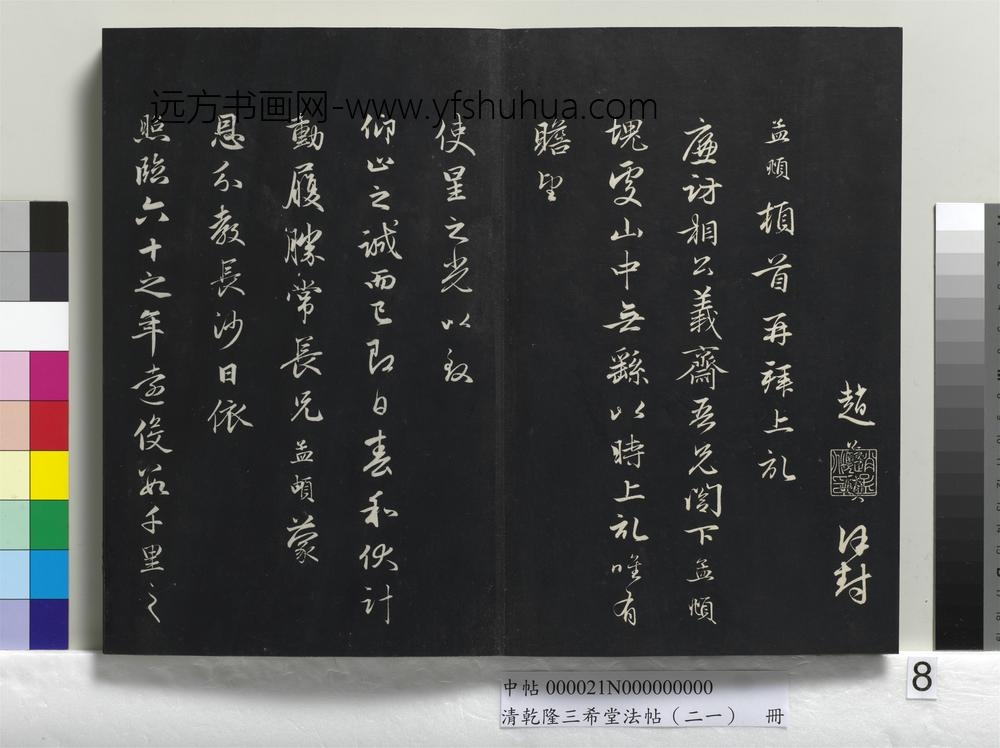 趙 謹封
孟頫頓首再拜上記
廉訪相公義齋吾兄閣下孟頫
塊處山中無繇以時上記唯有
瞻望
使星之光以致
仰止之誠而已即日春和伏計
動履勝常長兄孟頫蒙
恩分教長沙日依
照臨六十之年遠役數千里之
远方书画网-www.yfshuhua.com
中帖 000021N000000000
清乾隆三希堂法帖（二一） 冊
8